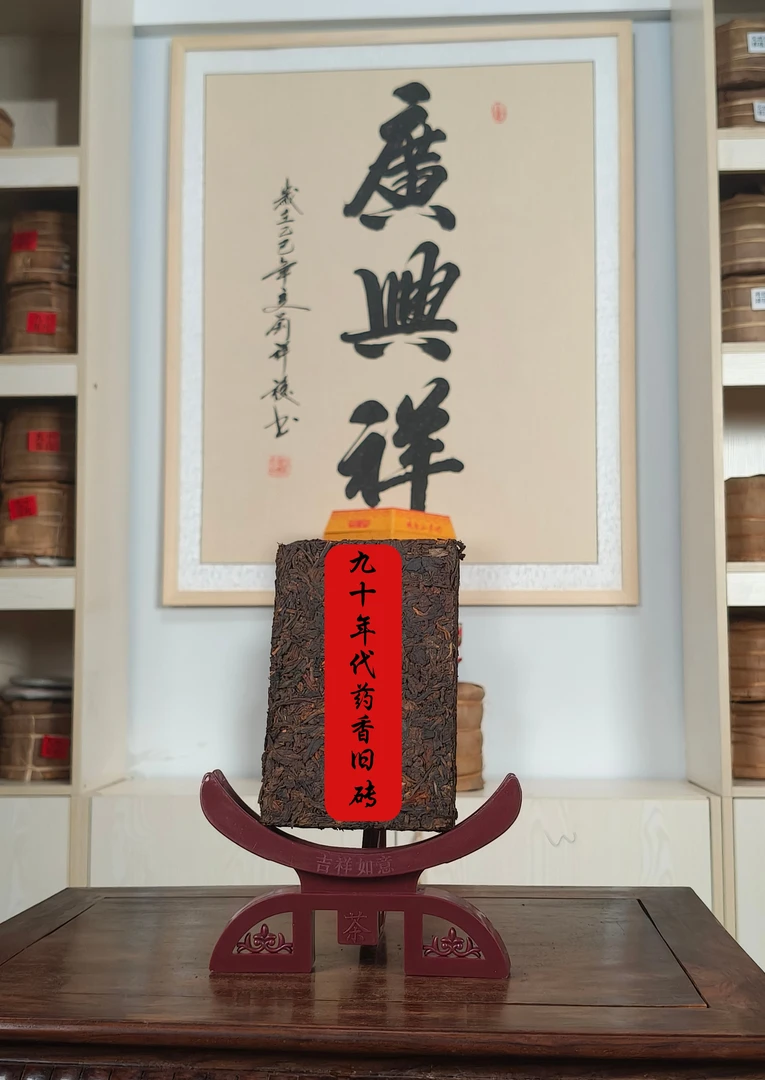 廣興祥
歲在乙巳年
九十年代药香旧砖
吉祥如意
茶